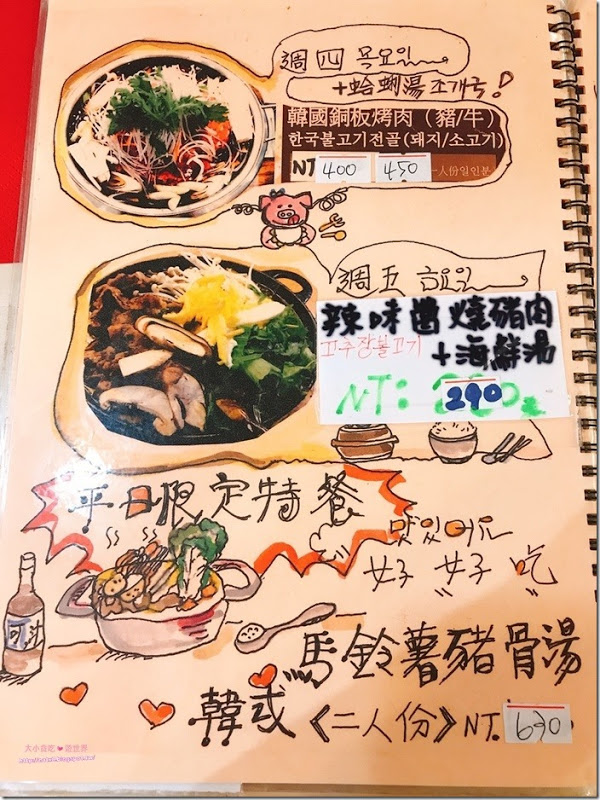 週四 목요일
+蛤蜊湯 조개국!
韓國銅板烤肉（豬/牛）
한국불고기전골(돼지/소고기)
NT 400 450 一人份일인분
週五 금요일
辣味醬燒豬肉
고추장불고기
+海鮮湯
NT: 290
平日限定特餐
맛있어요
好好吃
可汁
馬鈴薯豬骨湯
韓式《二人份》NT. 630
大小食吃❤遊世界